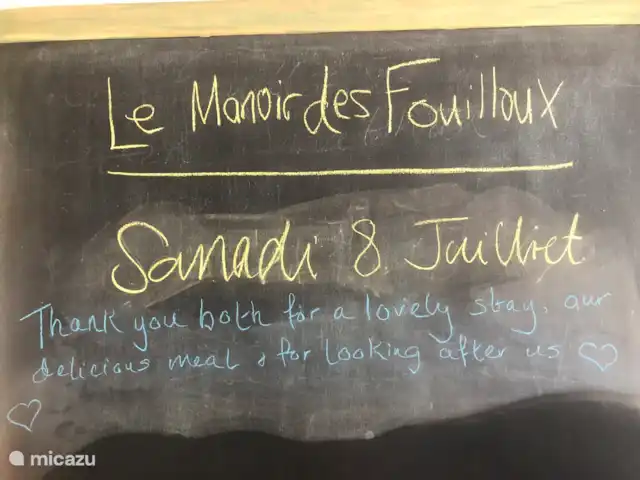 Le Manoir des Fouilloux
Samadi 8 Juilliet
Thank you both for a lovely stay, our
delicious meal & for looking after us ♡
♡
micazu